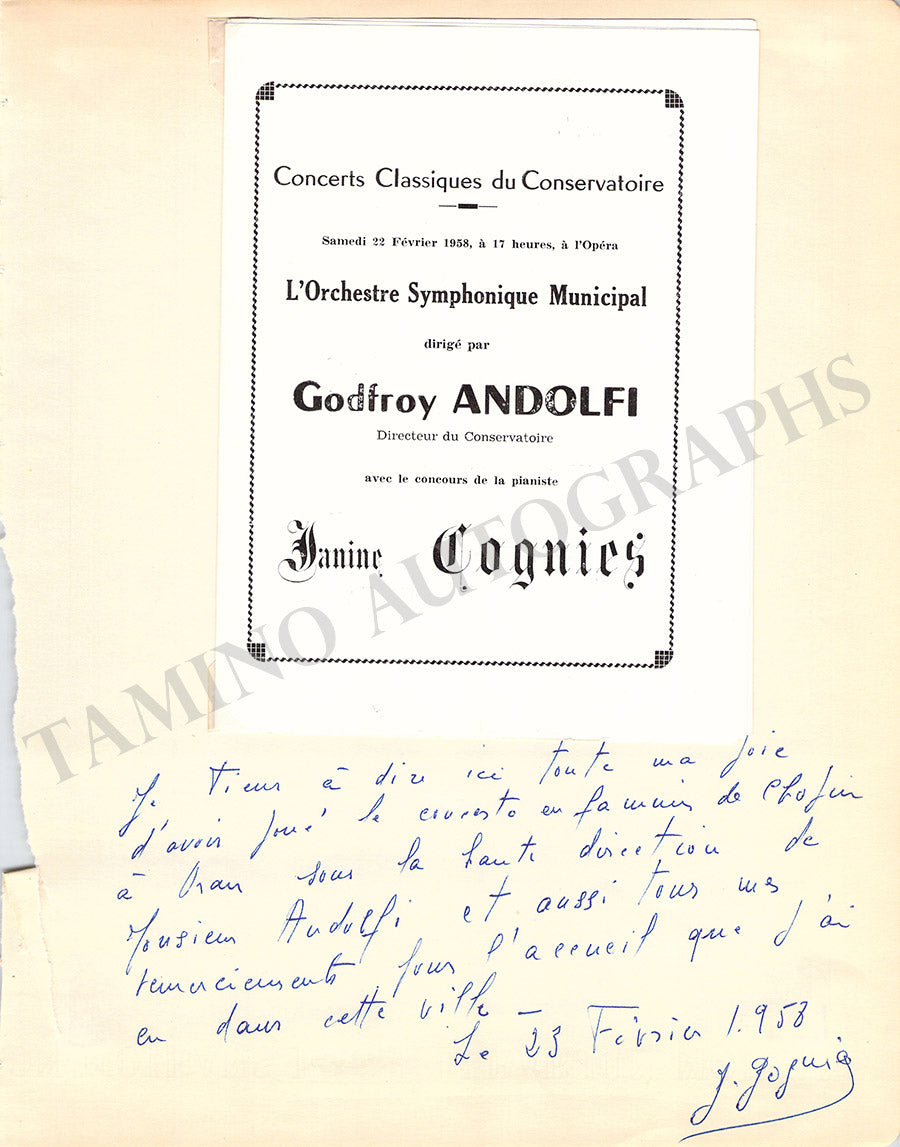 Concerts Classiques du Conservatoire
Samedi 22 Février 1958, à 17 heures, à l'Opéra
L'Orchestre Symphonique Municipal
dirigé par
Godfroy ANDOLFI
Directeur du Conservatoire
avec le concours de la pianiste
Janine Cognies
TAMINO AUTOGRAPHS
Je tiens à dire ici toute ma joie
d'avoir joué le concerto en fa mineur de Chopin
à Oran sous la haute direction de
Monsieur Andolfi et aussi tous mes
remerciements pour l'accueil que j'ai
eu dans cette ville _
Le 23 Février 1.958
J. Cognies